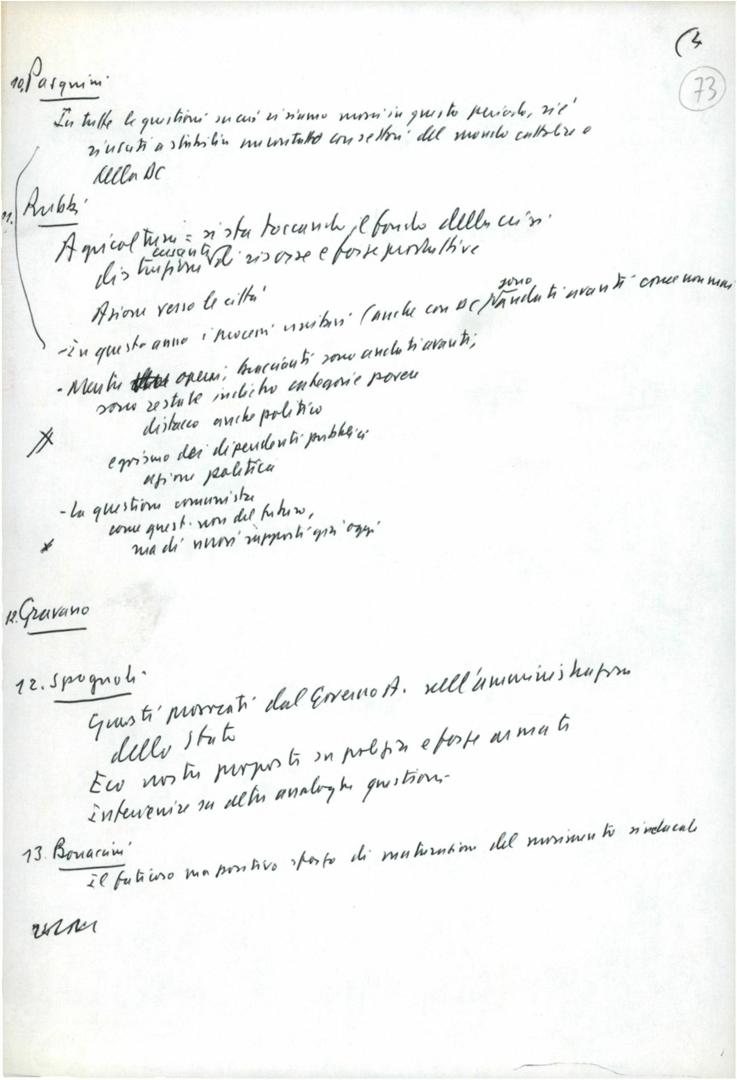 (4
73
10. Pasquini
In tutte le questioni su cui ci siamo mossi in questo periodo, si è
riusciti a stabilire un contatto con settori del mondo cattolico e
della DC
11. Rubbi
Agricoltura = si sta toccando il fondo della crisi
distruzione di risorse e forze produttive
Azione verso le città
- In questo anno i processi unitari (anche con DC) sono andati avanti come non mai
- Mentre operai, braccianti sono andati avanti,
sono restate indietro categorie povere
distacco anche politico
egoismo dei dipendenti pubblici
azione politica
- La questione comunista
come quest. non del futuro,
ma di nuovi rapporti già oggi
12. Gravano
12. Spagnoli
Guasti provocati dal Governo A. nell'amministrazione
dello Stato
Eco nostre proposte su polizia e forze armate
Intervenire su altre analoghe questioni
13. Bonaccini
Il faticoso ma positivo sforzo di maturazione del movimento sindacale